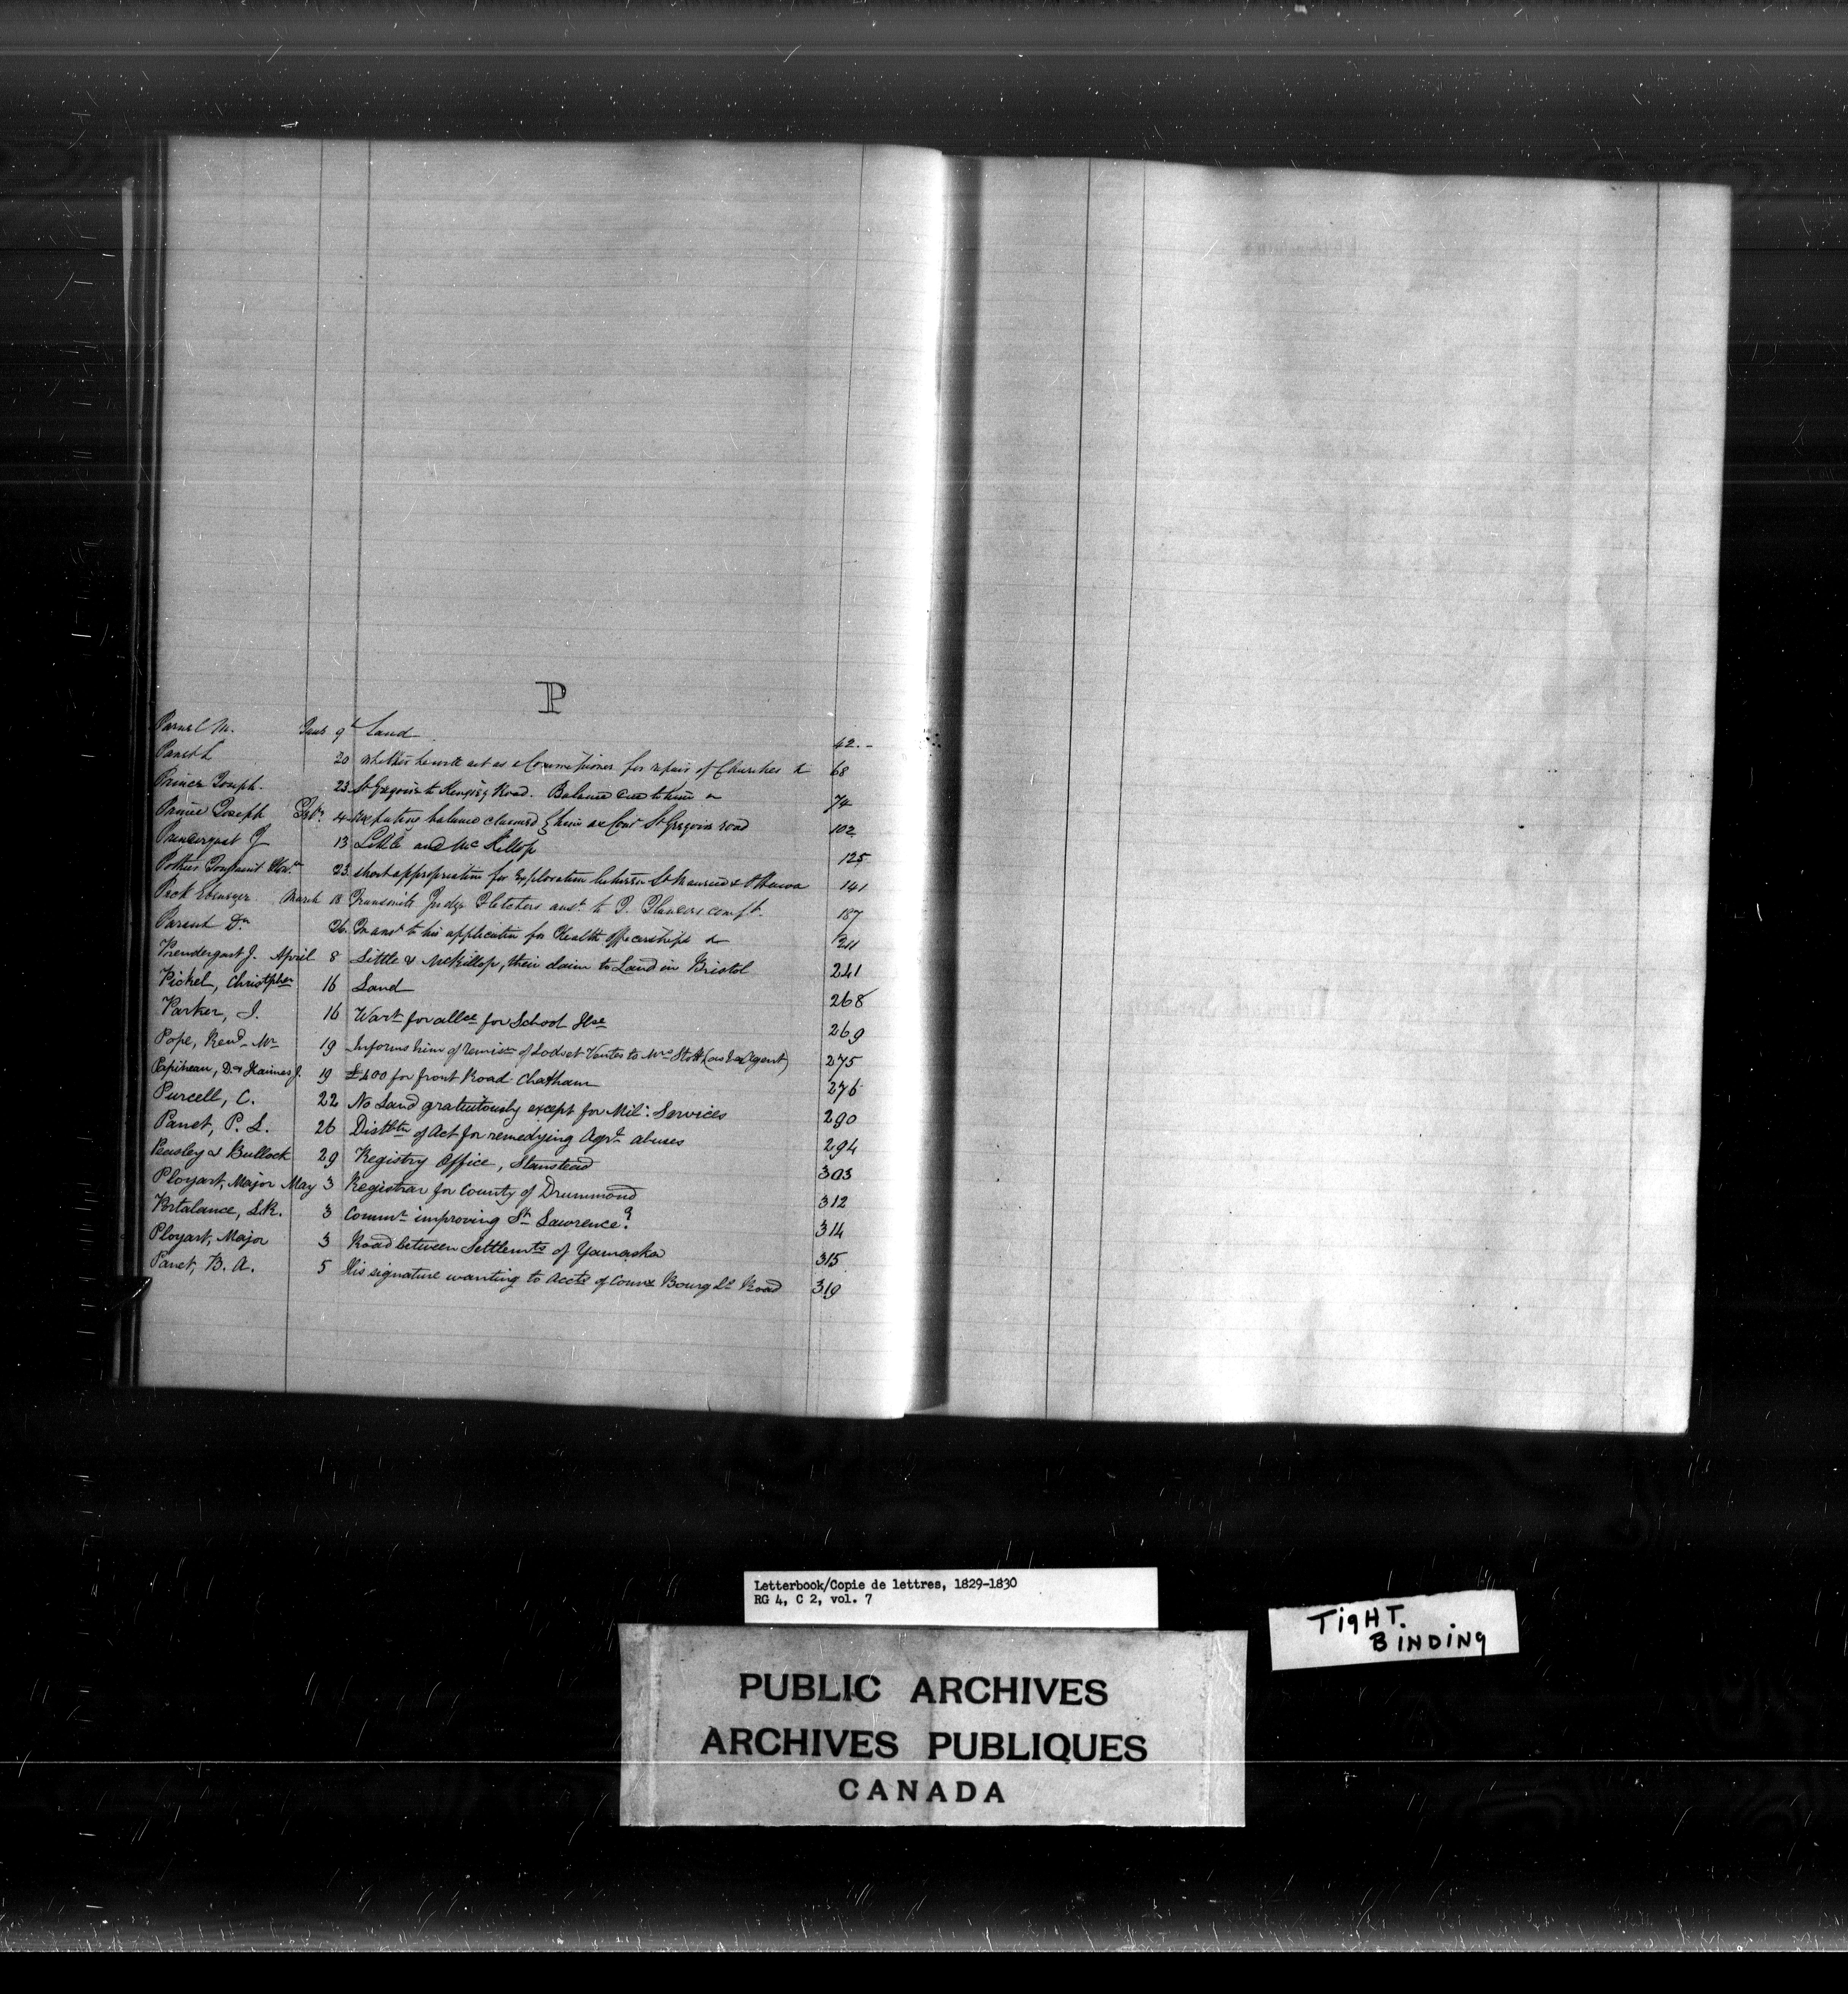 P
Parnel M. Jany 9th Land 42.-
Panet L 20 whether he will act as a Commissioner for repair of Churches & 68
Prince Joseph. 23 St Gregoire to Kingsey Road. Balance due to him & 74
Prince Joseph Feby. 4 Respecting balance claimed by him as Comr St Gregoire road 102
Prendergast J 13 Little and McKillop 125
Pothier Toussaint Honble 23 about appropriation for Exploration between St Maurice & Ottawa 141
Peck Ebenezer March 18 Transmits Judge Fletchers answr to compt. 187
Parent Dr 26 In answr to his application for Health officership & 211
Prendergast J. April 8 Little & McKillop, their claim to Land in Bristol 241
Pickel, Christopher 16 Land 268
Parker, J. 16 Wart for allce for School Hse 269
Pope, Revd Mr 19 Informs him of remisn of Lods et Ventes to Mrs Stott (as Agent) 275
Papineau, D. & Haines J. 19 £400 for front Road Chatham 276
Purcell, C. 22 No Land gratuitously except for Mil: Services 290
Panet, P. L. 26 Distbtn of Act for remedying Agrl abuses 294
Peasley & Bullock 29 Registry Office, Stanstead 303
Ployart, Major May 3 Registrar for County of Drummond 312
Portalance, L.R. 3 Commr improving St Lawrence? 314
Ployart, Major 3 Road between Settlemts of Yamaska 315
Panet, B. A. 5 His signature wanting to Accts of Commrs Bourg Ls Road 319
Letterbook/Copie de lettres, 1829-1830
RG 4, C 2, vol. 7
TIGHT.
BINDING
PUBLIC ARCHIVES
ARCHIVES PUBLIQUES
CANADA